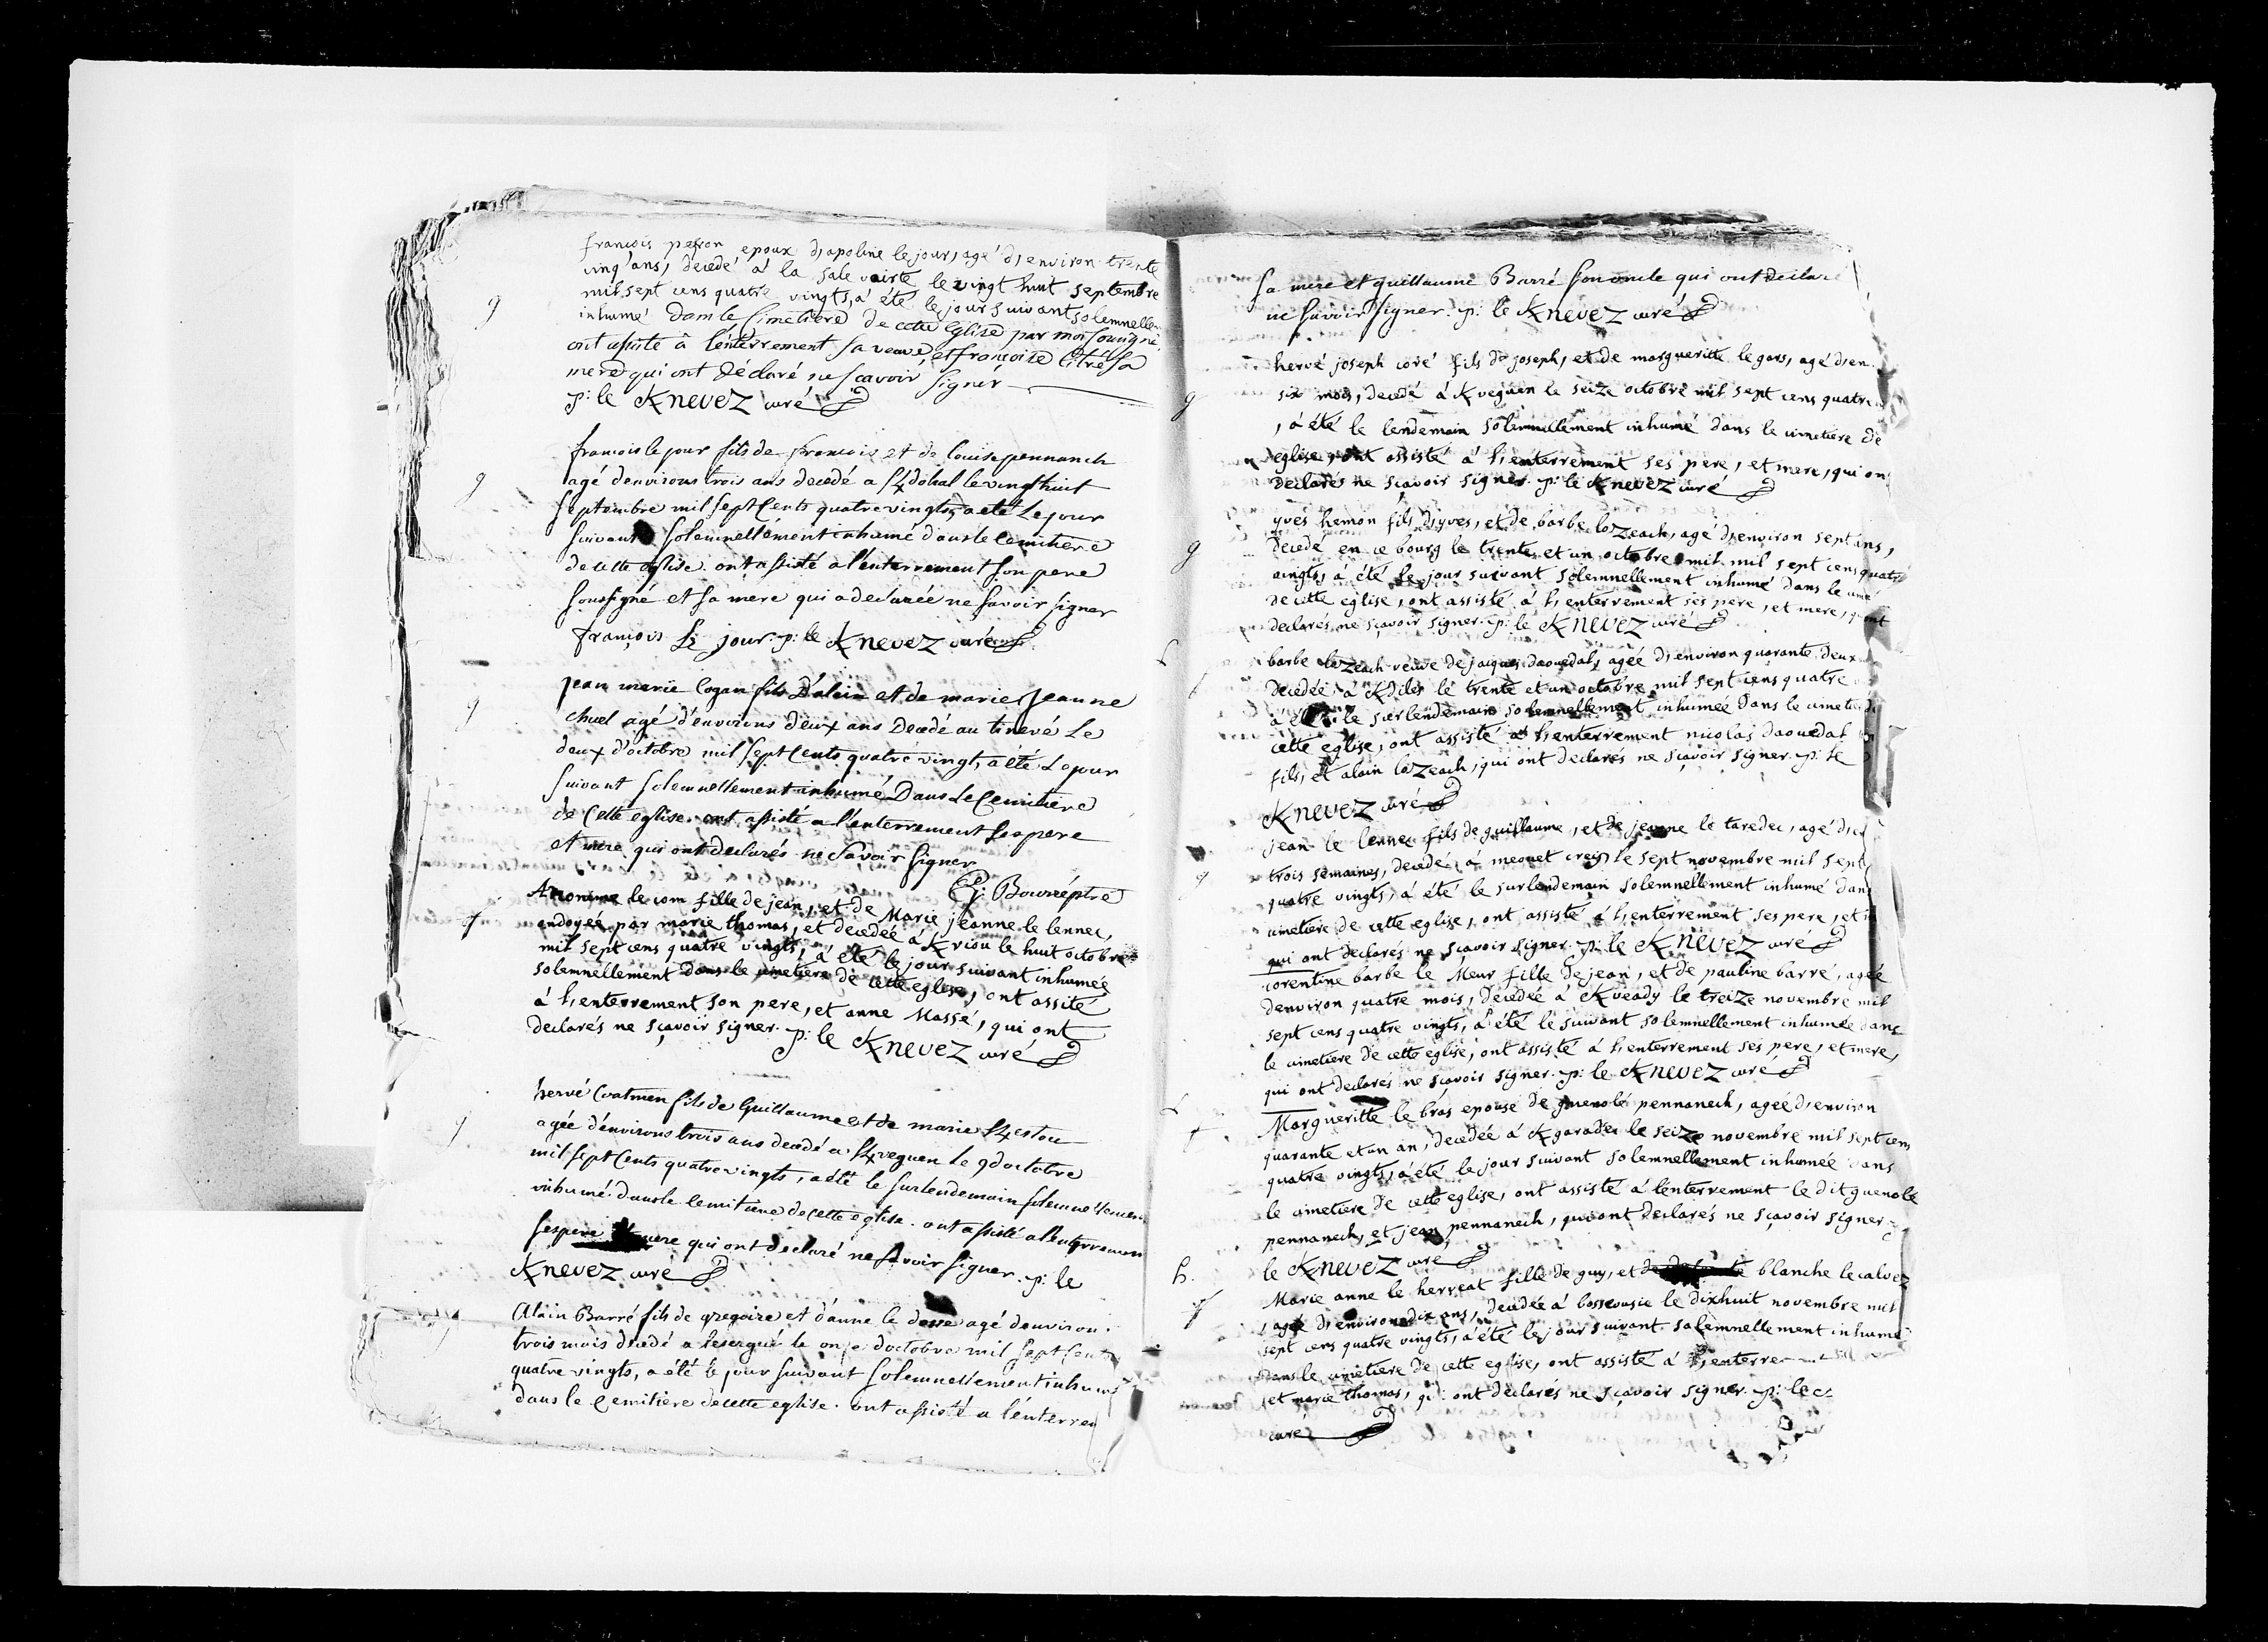 françois peron epoux d, apoline le jour, agé d, environ trente
cinq ans, decedé à la sale vairte le vingt huit septembre
mil sept cens quatre vingts, a été le jour suivant solemnellem
g
inhumé dans le Cimetiere de cette Eglise par moi soussigné
ont assisté à l'enterrement sa veuve, et françoise Citré sa
mere qui ont déclaré ne scavoir signér
p: le Knevez curé
françois le jour fils de francois et de louise pennanch
g
agé denvirons trois ans decedé a K dohal le vingt huit
septembre mil sept Cents quatre vingts, a eté Le jour
suivant solemnellement inhumé dans le Cemitiere
de cette eglise. ont assisté a l'enterrement son pere
soussigné et sa mere qui a declarée ne savoir signer
françois Le jour. p: le Knevez curé
jean marie Cogan fils D'alain et de marie Jeanne
g
chuel agé d'environs deux ans Decedé au tirevé Le
deux d'octobre mil sept Cents quatre vingt, a été Le jour
suivant solemnellement inhumé Dans Le Cemitiere
de Cette eglise. ont assisté a l'enterrement ses pere
et mere qui ont declarés ne Savoir signer
Bourré ptre
Anonime le com fille de jean, et de Marie jeanne le lennec,
f
endoyeé par marie thomas, et decedeé à Kriou le huit octobre
mil sept cens quatre vingts, a été le jour suivant inhumeé
solemnellement dans le cimetiere de cette eglise, ont assité
à l, enterrement son pere, et anne Massé, qui ont
declarés ne sçavoir signer. p: le Knevez curé
hervé Coatmen fils de Guillaume et de marie Kestou
g
agée d'environs trois ans decedé a Kveguen Le 9 d'octobre
mil sept Cents quatre vingts, a été le surlendemain solemnellement
inhumé dans le Cemitiere de cette eglise. ont assisté a l'enterrement
ses pere et mere qui ont declaré ne savoir signer. p: le
Knevez curé
Alain Barré fils de gregoire et d'anne le dene agé denviron
trois mois decedé a lesergué le onze d'octobre mil sept Cents
quatre vingts, a été le jour suivant solemnellement inhumé
dans le Cemitiere de cette eglise. ont assisté a l'enterre
sa mere et guillaume Barré son oncle qui ont declaré
ne savoir signer. p: le Knevez curé
hervé joseph coré fils de joseph, et de margueritte le gars, agé d, en
g
six mois, decedé à Kveguen le seize octobre mil sept cens quatre
, à été le lendemain solemnellement inhumé dans le cimetiere de
eglise, ont assisté à l, enterrement ses pere, et mere, qui on
declarés ne sçavoir signer. p: le Knevez curé
yves hemon fils d, yves, et de barbe lozeach, agé d, environ sept ans,
g
decedé en ce bourg le trente et un octobre mil mil sept cens quatre
vingts, à été le jour suivant solemnellement inhumé dans le cime
de cette eglise, ont assisté à l, enterrement ses pere, et mere, qui ont
declarés ne sçavoir signer. p: le Knevez curé
barbe lozeach veuve de jacques daouedal, agée d, environ quarante deux
f
decedée à Kdiles le trente et un octobre mil sept cens quatre
à été le surlendemain solemnellement inhumée dans le cimetiere
cette eglise, ont assisté à l, enterrement nicolas daouedal
fils, et alain lozeach, qui ont declarés ne sçavoir signer. p: le
Knevez curé
jean le lennec fils de guillaume, et de jeanne le taredec, agé d, en
g
trois semaines, decedé à meouet creis le sept novembre mil sept
quatre vingts, à été le surlendemain solemnellement inhumé dans
cimetiere de cette eglise, ont assisté à l, enterrement ses pere, et
qui ont declarés ne sçavoir signer. p: le Knevez curé
corentine barbe le Meur fille de jean, et de pauline barré, agée
denviron quatre mois, decedée à Kveady le treize novembre mil
sept cens quatre vingts, à été le suivant solemnellement inhumée dans
le cimetiere de cette eglise, ont assisté à l, enterrement ses pere, et mere,
qui ont declarés ne sçavoir signer. p: le Knevez curé
Margueritte le bras epouse de guenolé pennanech, agée d, environ
f
quarante et un an, decedée à Kgaradec le seize novembre mil sept cens
quatre vingts, à été le jour suivant solemnellement inhumée dans
le cimetiere de cette eglise, ont assisté à l'enterrement le dit guenole
pennanech, et jean pennanech, qui ont declarés ne sçavoir signer
le Knevez curé
h.
Marie anne le herreat fille de guy, et blanche le calvez
f
, agée d, environ dix ans, decedée à bossousie le dixhuit novembre mil
sept cens quatre vingts, à été le jour suivant solemnellement inhumé
dans le cimetiere de cette eglise, ont assisté à l, enterre
, et marie thomas, qui ont declarés ne sçavoir signer. p: le
curé